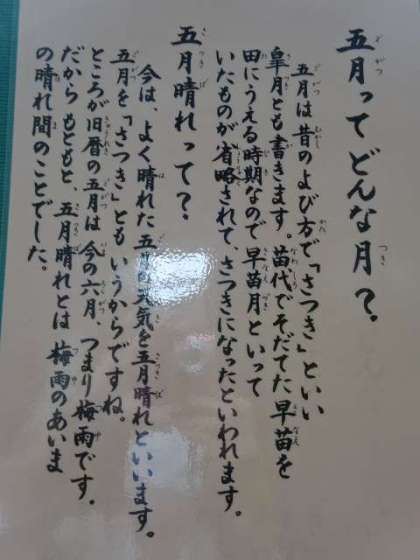 五月ってどんな月？
五月は昔のよび方で「さつき」といい
皐月とも書きます。苗代でそだてた早苗を
田にうえる時期なので、早苗月といって
いたものが、省略されて、さつきになったといわれます。
五月晴れって？
今は、よく晴れた五月の天気を五月晴れといいます。
五月を「さつき」ともいうからですね。
ところが旧暦の五月は今の六月、つまり梅雨です。
だからもともと、五月晴れとは梅雨のあいま
の晴れ間のことでした。